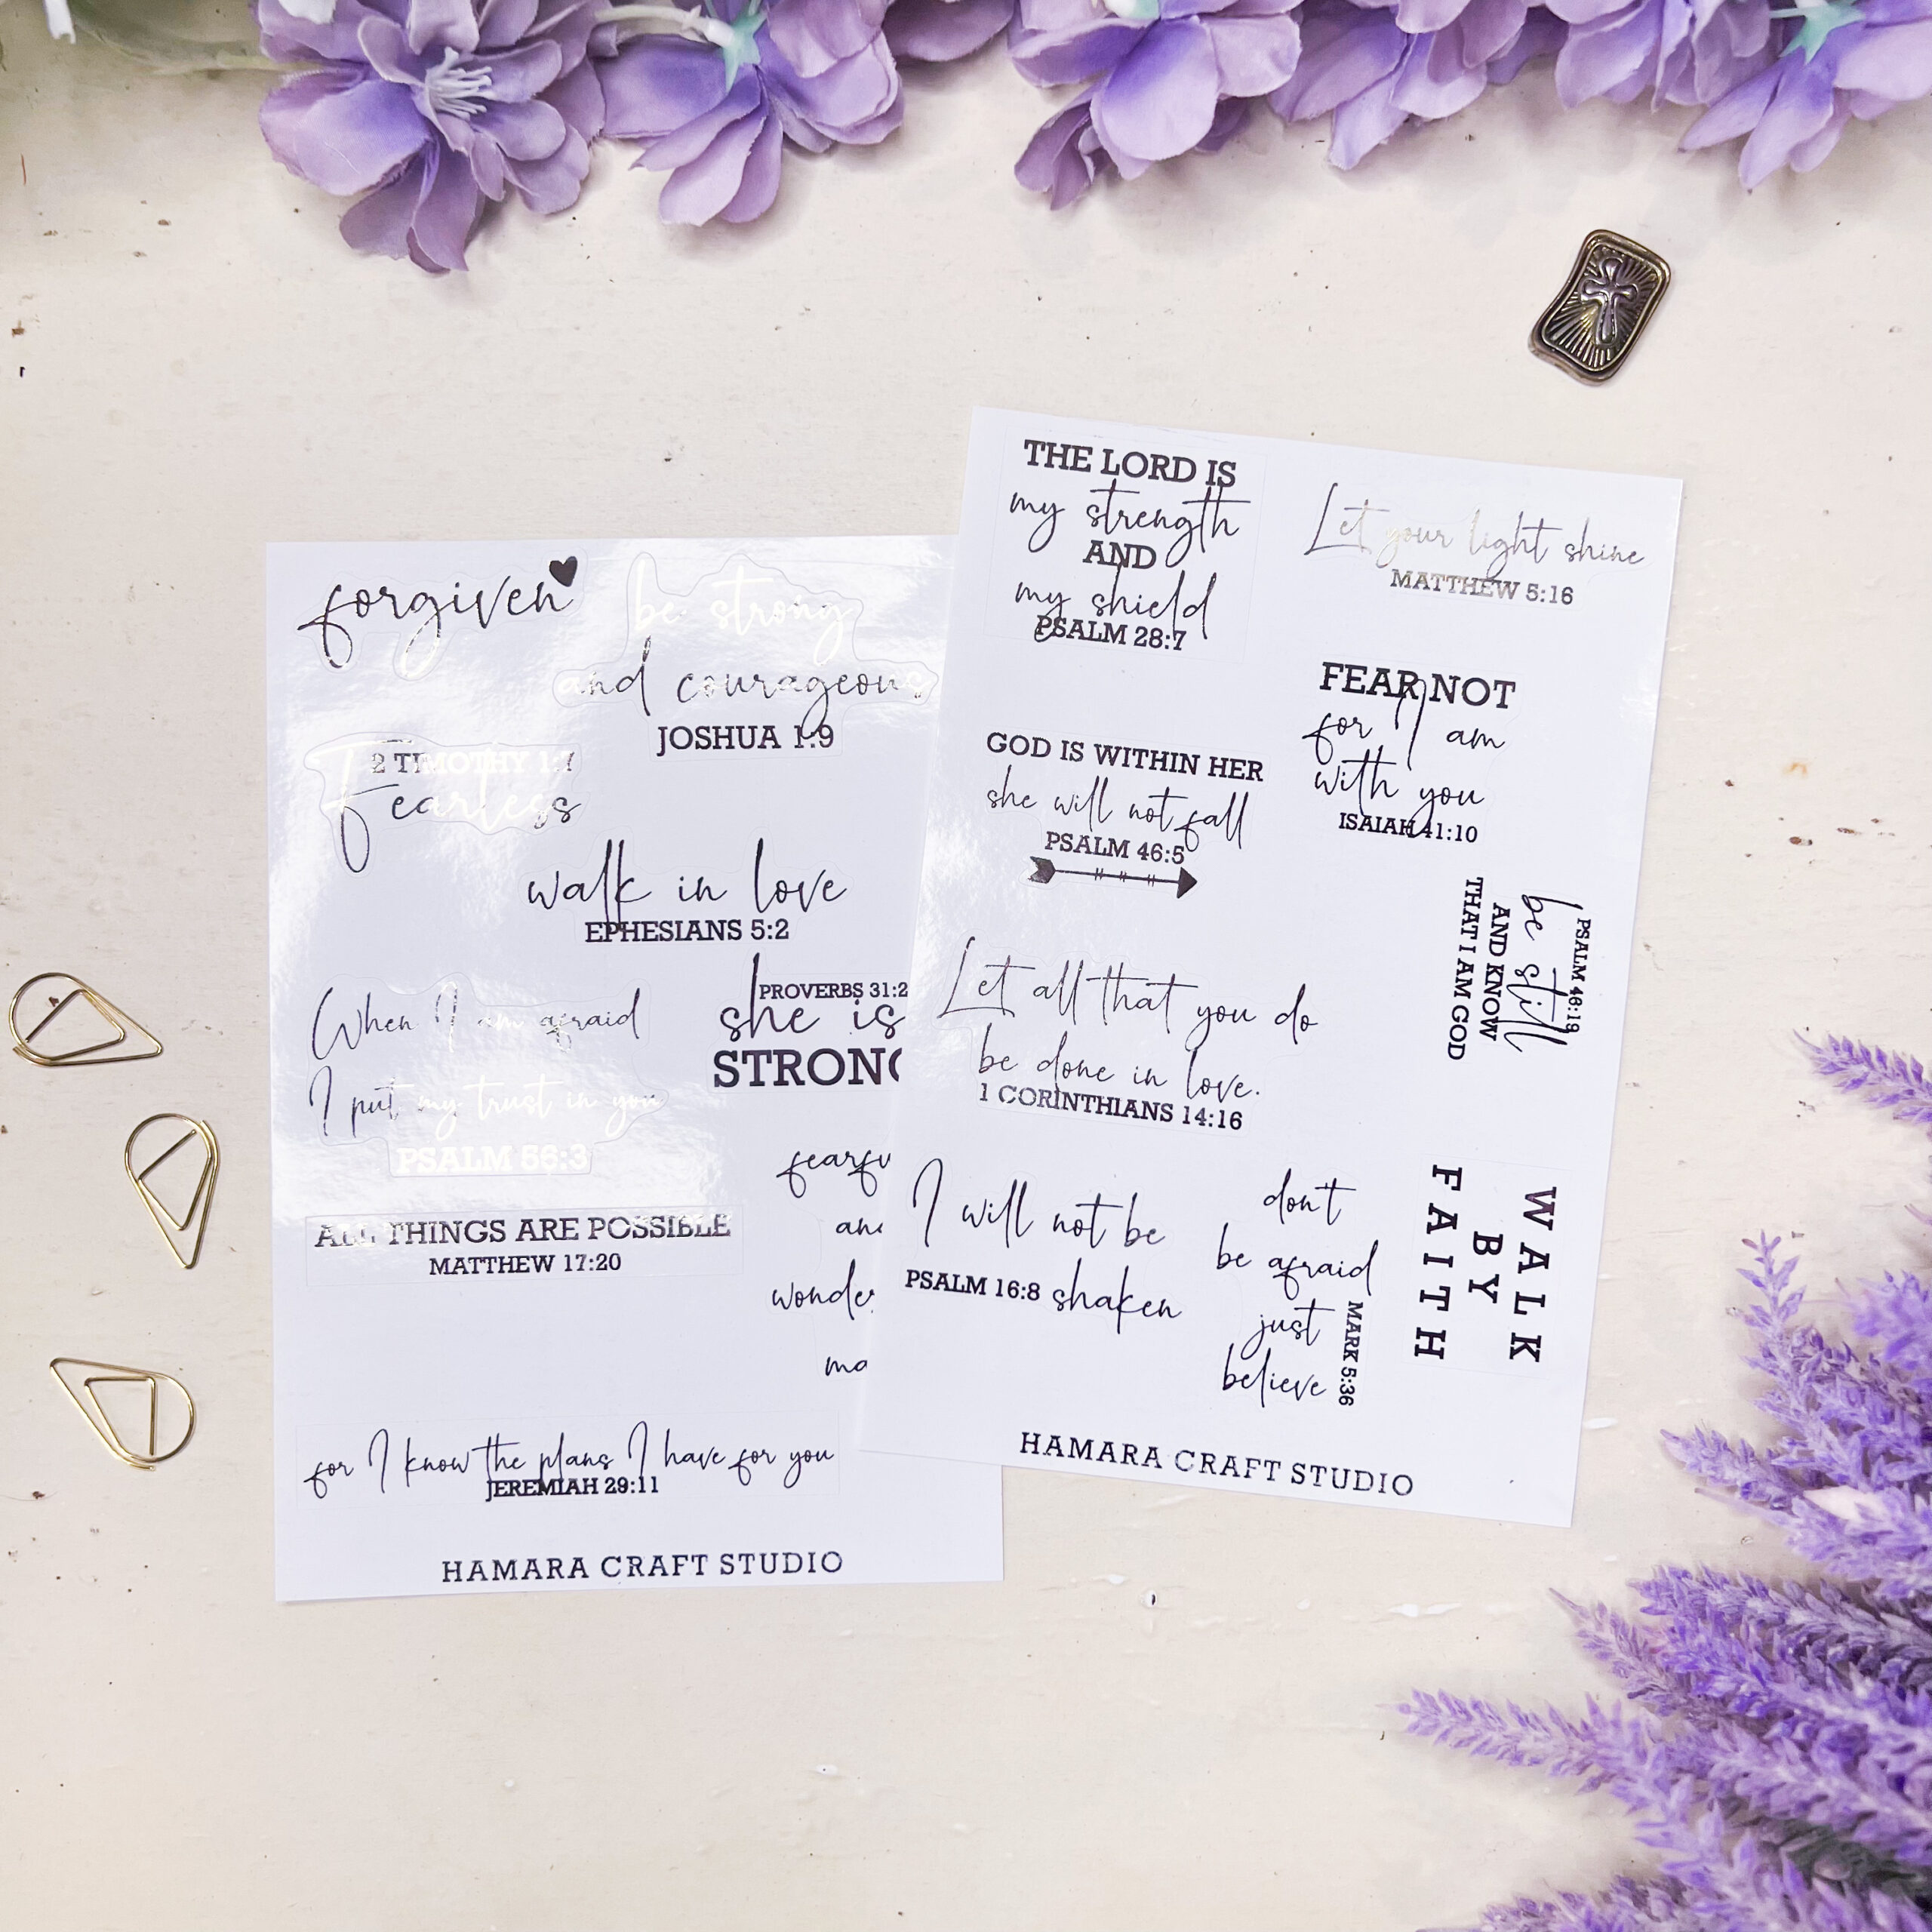 forgiven
be strong
and courageous
JOSHUA 1:9
2 TIMOTHY 1:7
Fearless
walk in love
EPHESIANS 5:2
When I am afraid
I put my trust in you
PSALM 56:3
PROVERBS 31:2
she is
STRONG
ALL THINGS ARE POSSIBLE
MATTHEW 17:20
fearfu
and
wonder
ma
for I know the plans I have for you
JEREMIAH 29:11
HAMARA CRAFT STUDIO
THE LORD IS
my strength
AND
my shield
PSALM 28:7
Let your light shine
MATTHEW 5:16
FEAR NOT
for I am
with you
ISAIAH 41:10
GOD IS WITHIN HER
she will not fall
PSALM 46:5
PSALM 46:19
be still
AND KNOW
THAT I AM GOD
Let all that you do
be done in love.
1 CORINTHIANS 14:16
I will not be
PSALM 16:8 shaken
don't
be afraid
just
believe
MARK 5:36
WALK
BY
FAITH
HAMARA CRAFT STUDIO